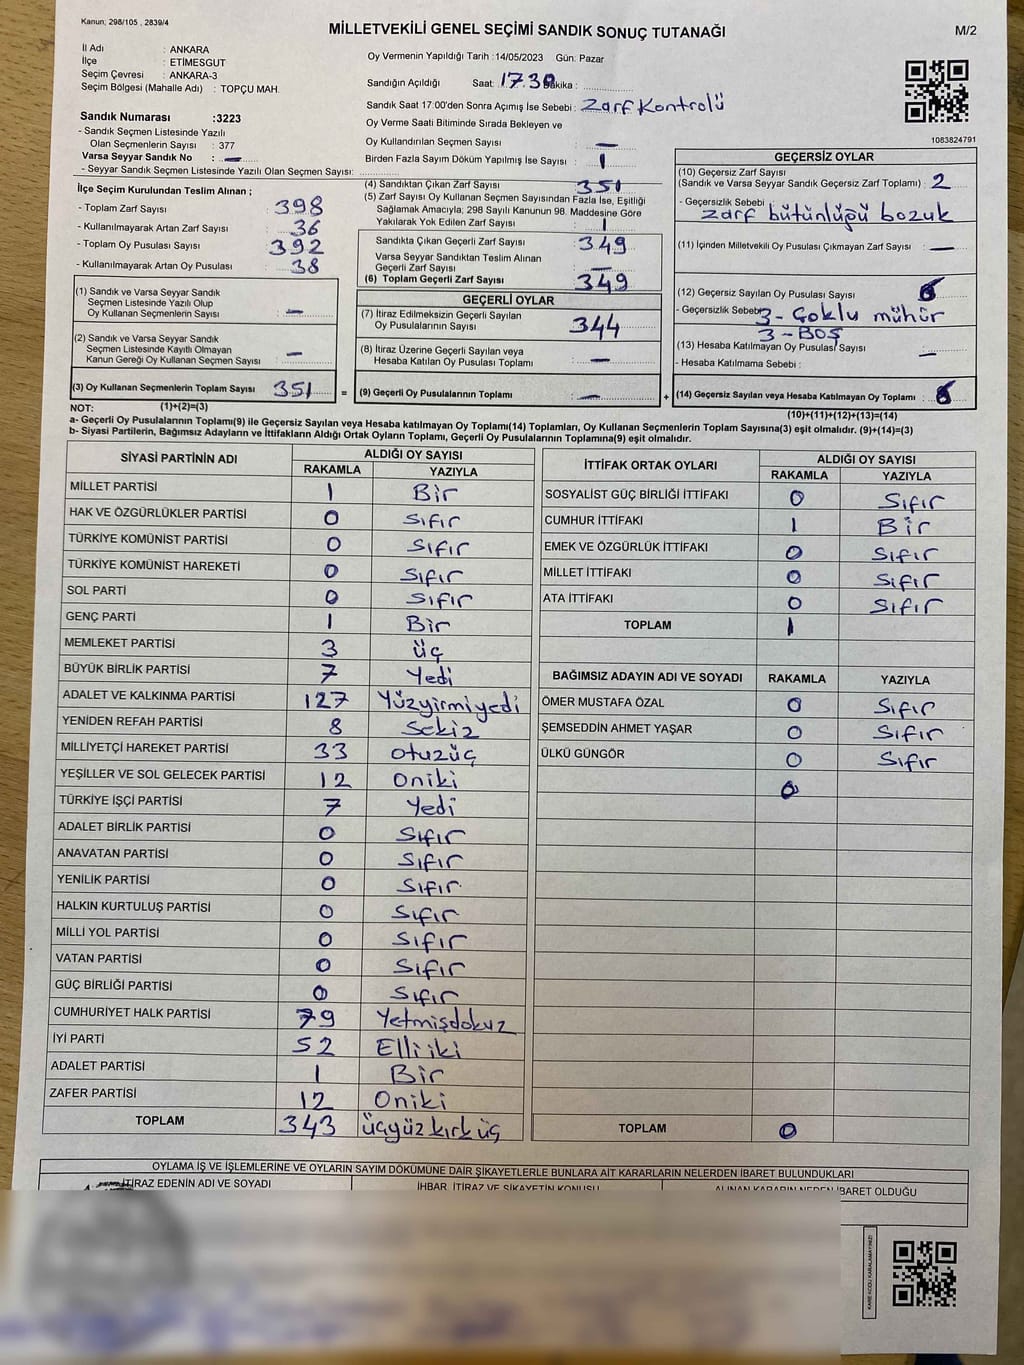 Kanun; 298/105 , 2839/4
MİLLETVEKİLİ GENEL SEÇİMİ SANDIK SONUÇ TUTANAĞI
M/2
İl Adı : ANKARA
İlçe : ETİMESGUT
Seçim Çevresi : ANKARA-3
Seçim Bölgesi (Mahalle Adı) : TOPÇU MAH.
Sandık Numarası :3223
- Sandık Seçmen Listesinde Yazılı
Olan Seçmenlerin Sayısı : 377
Varsa Seyyar Sandık No : —
- Seyyar Sandık Seçmen Listesinde Yazılı Olan Seçmen Sayısı:
Oy Vermenin Yapıldığı Tarih :14/05/2023 Gün: Pazar
Sandığın Açıldığı Saat: 17.30 Dakika :
Sandık Saat 17:00'den Sonra Açımış İse Sebebi : Zarf Kontrolü
Oy Verme Saati Bitiminde Sırada Bekleyen ve
Oy Kullandırılan Seçmen Sayısı : —
Birden Fazla Sayım Döküm Yapılmış İse Sayısı : 1
1083824791
İlçe Seçim Kurulundan Teslim Alınan ;
- Toplam Zarf Sayısı : 398
- Kullanılmayarak Artan Zarf Sayısı : 36
- Toplam Oy Pusulası Sayısı : 392
- Kullanılmayarak Artan Oy Pusulası : 38
(1) Sandık ve Varsa Seyyar Sandık
Seçmen Listesinde Yazılı Olup
Oy Kullanan Seçmenlerin Sayısı : —
(2) Sandık ve Varsa Seyyar Sandık
Seçmen Listesinde Kayıtlı Olmayan
Kanun Gereği Oy Kullanan Seçmen Sayısı : —
(3) Oy Kullanan Seçmenlerin Toplam Sayısı : 351
(4) Sandıktan Çıkan Zarf Sayısı : 351
(5) Zarf Sayısı Oy Kullanan Seçmen Sayısından Fazla İse, Eşitliği
Sağlamak Amacıyla; 298 Sayılı Kanunun 98. Maddesine Göre
Yakılarak Yok Edilen Zarf Sayısı : 1
Sandıkta Çıkan Geçerli Zarf Sayısı : 349
Varsa Seyyar Sandıktan Teslim Alınan
Geçerli Zarf Sayısı : —
(6) Toplam Geçerli Zarf Sayısı : 349
GEÇERLİ OYLAR
(7) İtiraz Edilmeksizin Geçerli Sayılan
Oy Pusulalarının Sayısı : 344
(8) İtiraz Üzerine Geçerli Sayılan veya
Hesaba Katılan Oy Pusulaları Toplamı : —
= (9) Geçerli Oy Pusulalarının Toplamı : —
GEÇERSİZ OYLAR
(10) Geçersiz Zarf Sayısı
(Sandık ve Varsa Seyyar Sandık Geçersiz Zarf Toplamı) : 2
- Geçersizlik Sebebi : zarf bütünlüğü bozuk
(11) İçinden Milletvekili Oy Pusulası Çıkmayan Zarf Sayısı : —
(12) Geçersiz Sayılan Oy Pusulası Sayısı :
- Geçersizlik Sebebi : 3 - Çoklu mühür
3 - Boş
(13) Hesaba Katılmayan Oy Pusulası Sayısı : —
- Hesaba Katılmama Sebebi :
+ (14) Geçersiz Sayılan veya Hesaba Katılmayan Oy Toplamı :
NOT: (1)+(2)=(3)
(10)+(11)+(12)+(13)=(14)
a- Geçerli Oy Pusulalarının Toplamı(9) ile Geçersiz Sayılan veya Hesaba katılmayan Oy Toplamı(14) Toplamları, Oy Kullanan Seçmenlerin Toplam Sayısına(3) eşit olmalıdır. (9)+(14)=(3)
b- Siyasi Partilerin, Bağımsız Adayların ve İttifakların Aldığı Ortak Oyların Toplamı, Geçerli Oy Pusulalarının Toplamına(9) eşit olmalıdır.
SİYASİ PARTİNİN ADI ALDIĞI OY SAYISI
RAKAMLA YAZIYLA
MİLLET PARTİSİ 1 Bir
HAK VE ÖZGÜRLÜKLER PARTİSİ 0 Sıfır
TÜRKİYE KOMÜNİST PARTİSİ 0 Sıfır
TÜRKİYE KOMÜNİST HAREKETİ 0 Sıfır
SOL PARTİ 0 Sıfır
GENÇ PARTİ 1 Bir
MEMLEKET PARTİSİ 3 üç
BÜYÜK BİRLİK PARTİSİ 7 Yedi
ADALET VE KALKINMA PARTİSİ 127 Yüzyirmiyedi
YENİDEN REFAH PARTİSİ 8 Sekiz
MİLLİYETÇİ HAREKET PARTİSİ 33 otuzüç
YEŞİLLER VE SOL GELECEK PARTİSİ 12 Oniki
TÜRKİYE İŞÇİ PARTİSİ 7 Yedi
ADALET BİRLİK PARTİSİ 0 Sıfır
ANAVATAN PARTİSİ 0 Sıfır
YENİLİK PARTİSİ 0 Sıfır
HALKIN KURTULUŞ PARTİSİ 0 Sıfır
MİLLİ YOL PARTİSİ 0 Sıfır
VATAN PARTİSİ 0 Sıfır
GÜÇ BİRLİĞİ PARTİSİ 0 Sıfır
CUMHURİYET HALK PARTİSİ 79 Yetmişdokuz
İYİ PARTİ 52 Elliiki
ADALET PARTİSİ 1 Bir
ZAFER PARTİSİ 12 Oniki
TOPLAM 343 üçyüzkırküç
İTTİFAK ORTAK OYLARI ALDIĞI OY SAYISI
RAKAMLA YAZIYLA
SOSYALİST GÜÇ BİRLİĞİ İTTİFAKI 0 Sıfır
CUMHUR İTTİFAKI 1 Bir
EMEK VE ÖZGÜRLÜK İTTİFAKI 0 Sıfır
MİLLET İTTİFAKI 0 Sıfır
ATA İTTİFAKI 0 Sıfır
TOPLAM 1
BAĞIMSIZ ADAYIN ADI VE SOYADI RAKAMLA YAZIYLA
ÖMER MUSTAFA ÖZAL 0 Sıfır
ŞEMSEDDİN AHMET YAŞAR 0 Sıfır
ÜLKÜ GÜNGÖR 0 Sıfır
0
TOPLAM 0
OYLAMA İŞ VE İŞLEMLERİNE VE OYLARIN SAYIM DÖKÜMÜNE DAİR ŞİKAYETLERLE BUNLARA AİT KARARLARIN NELERDEN İBARET BULUNDUKLARI
İTİRAZ EDENİN ADI VE SOYADI İHBAR, İTİRAZ VE ŞİKAYETİN KONUSU ALINAN KARARIN NEDEN İBARET OLDUĞU
KARE KODU KARALAMAYINIZ!